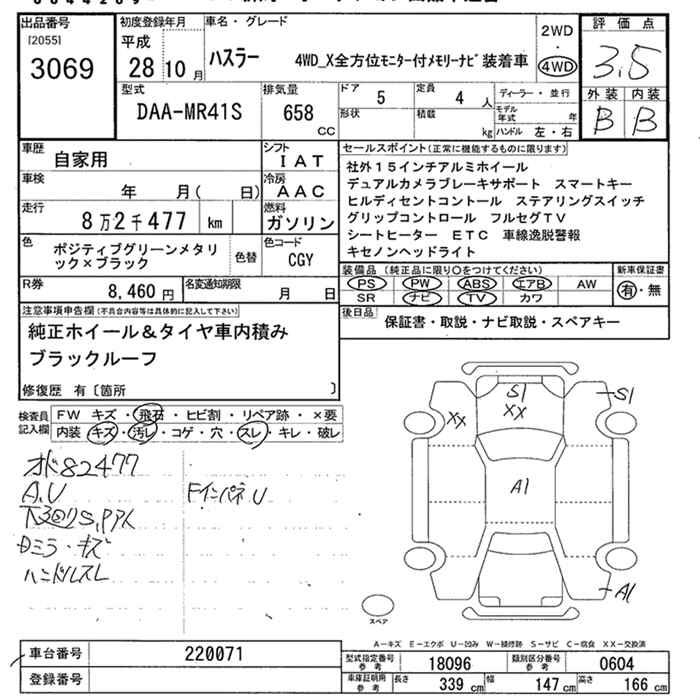 出品番号
[2055]
3069
初度登録年月
平成
28 10月
車名・グレード
ハスラー
4WD_X全方位モニター付メモリーナビ装着車
2WD
・
4WD
評価点
3.5
外装 内装
B B
型式
DAA-MR41S
排気量
658
cc
ドア 5
定員 4 人
形状
積載 kg
ディーラー・並行
モデル年式 年
ハンドル 左・右
車歴 自家用
シフト IAT
車検 年 月( 日)
冷房 AAC
走行 8万2千477 km
燃料 ガソリン
色 ポジティブグリーンメタリック×ブラック
色替
色コード CGY
R券 8,460円
名変通知期限 月 日
セールスポイント(正常に機能するものに限ります)
社外15インチアルミホイール
デュアルカメラブレーキサポート スマートキー
ヒルディセントコントロール ステアリングスイッチ
グリップコントロール フルセグTV
シートヒーター ETC 車線逸脱警報
キセノンヘッドライト
装備品(純正品に限り○をつけてください)
PS PW ABS エアB AW
SR ナビ TV カワ
新車保証書
有・無
後日品 保証書・取説・ナビ取説・スペアキー
注意事項申告欄(不具合内容等は具体的に記入して下さい)
純正ホイール&タイヤ車内積み
ブラックルーフ
修復歴 有〔箇所 〕
検査員記入欄
FW キズ・飛石・ヒビ割・リペア跡・×要
内装 キズ・汚レ・コゲ・穴・スレ・キレ・破レ
オド82477
A,U
下回りS,PアK
Dミラ・キズ
ハンドルスレ
FインパネU
S1
XX
XX
S1
A1
A1
スペア
A-キズ E-エクボ U-凹み W-補修跡 S-サビ C-腐食 XX-交換済
車台番号 220071
登録番号
型式指定番号参考 18096
類別区分番号参考 0604
車庫証明用参考 長さ 339cm 幅 147cm 高さ 166cm